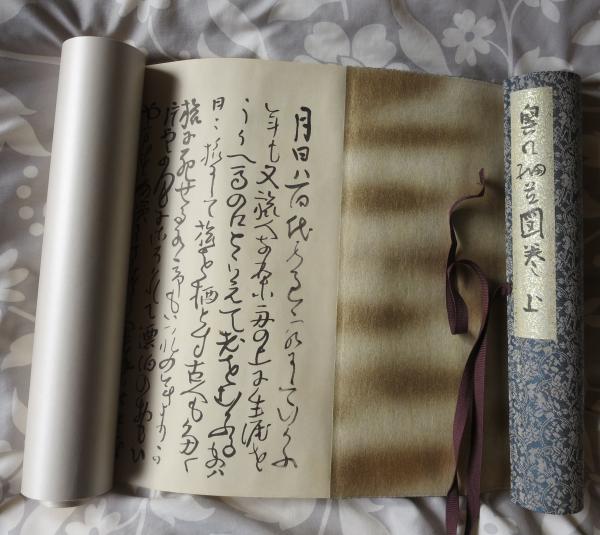 奥の細道圖巻 上
月日ハ百代の過客にしていきかふ
年も又旅人なり舟の上に生涯を
うかへ馬の口とらへて老をむかふる者ハ
日ゝ旅にして旅を栖とす古人も多く
旅に死せるあり予もいつれの年よりか
片雲の風にさそはれて漂泊のおもひ